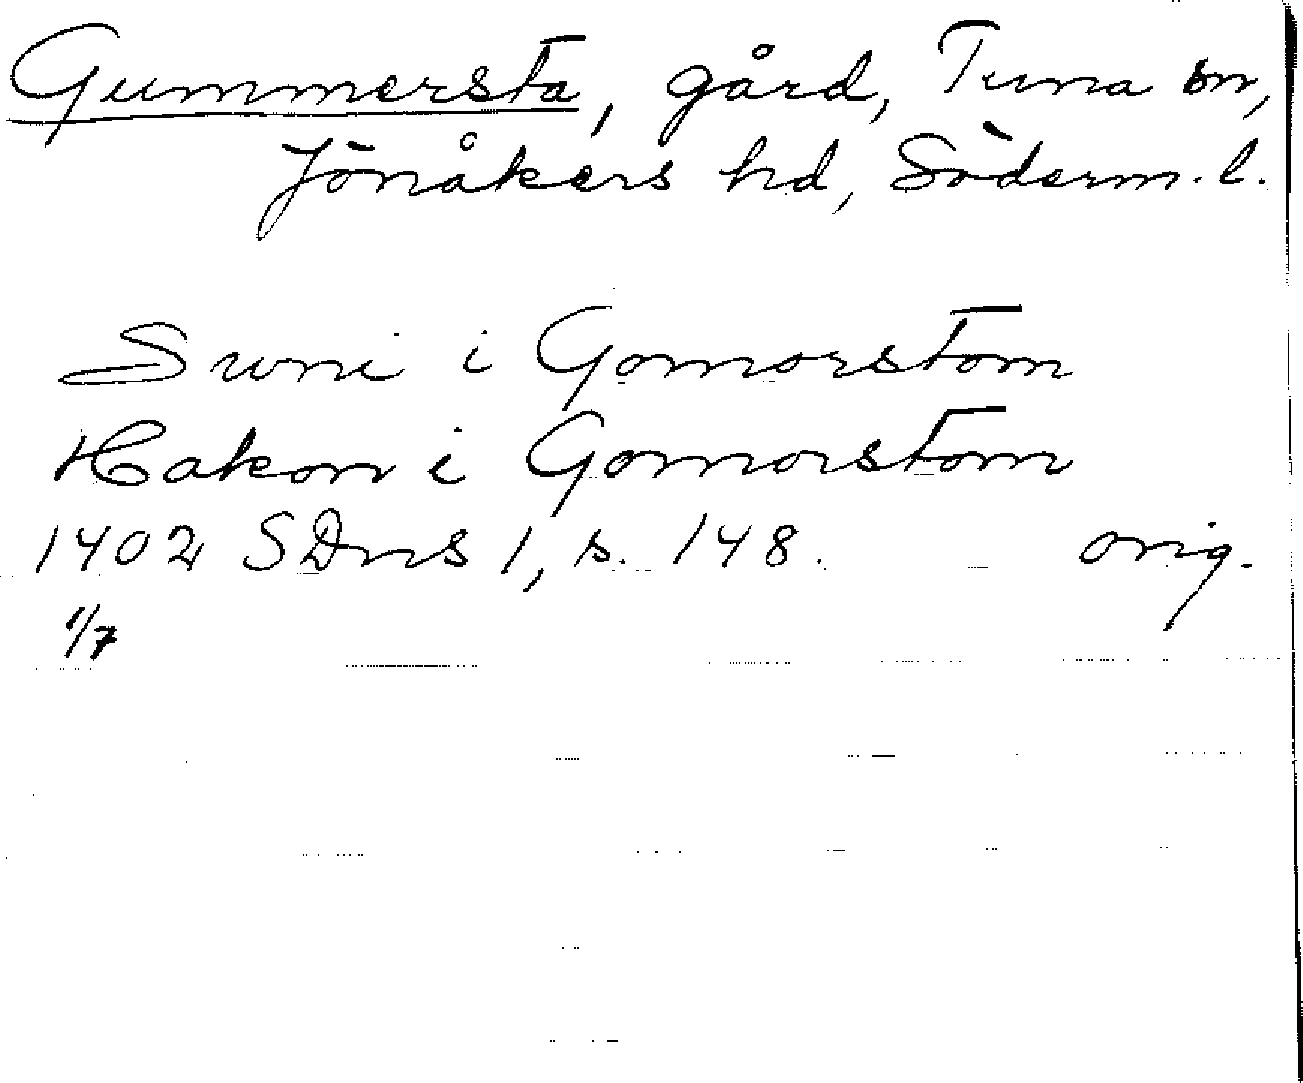 Gummersta, gård, Tuna sn,
Jönåkers hd, Söderm. l.
Suni i Gomorstom
Hakon i Gomorstom
1402 SDns 1, s. 148. orig.
1/7